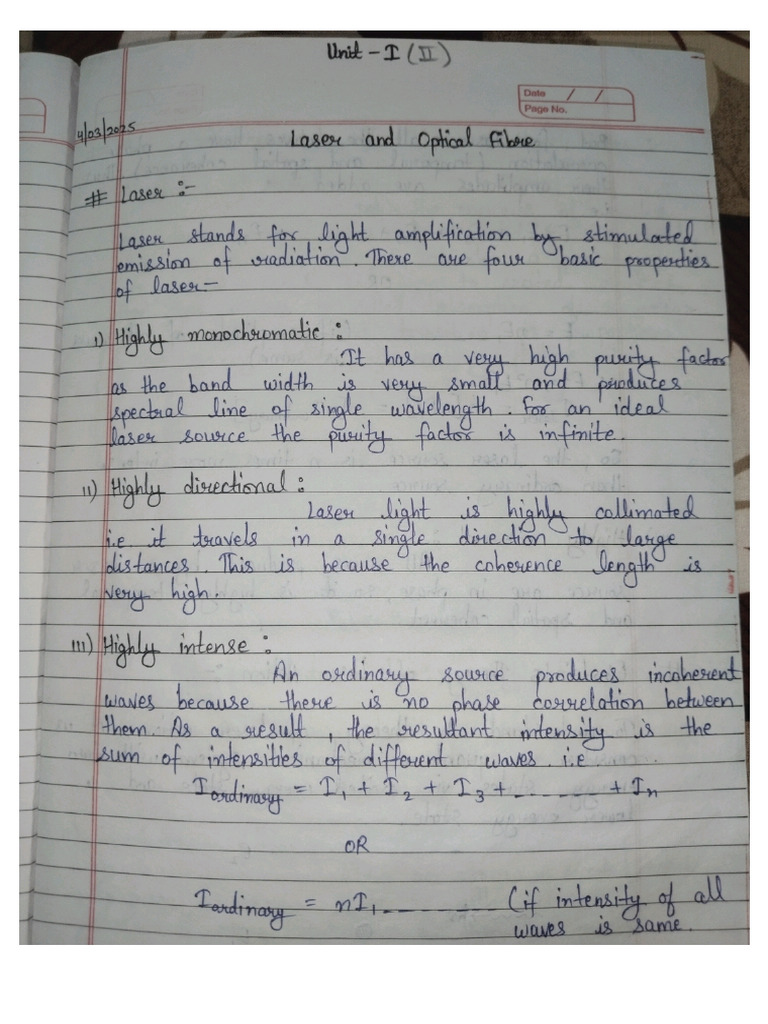 Unit - I (II)
Date / /
Page No.
4/03/2025
Laser and Optical Fibre
# Laser :-
Laser stands for light amplification by stimulated
emission of radiation. There are four basic properties
of laser-
i) Highly monochromatic :
It has a very high purity factor
as the band width is very small and produces
spectral line of single wavelength. For an ideal
laser source the purity factor is infinite.
ii) Highly directional :
Laser light is highly collimated
i.e it travels in a single direction to large
distances. This is because the coherence length is
very high.
iii) Highly intense :
An ordinary source produces incoherent
waves because there is no phase correlation between
them. As a result, the resultant intensity is the
sum of intensities of different waves. i.e
I ordinary = I1 + I2 + I3 + ------ + In
OR
I ordinary = nI1 -------- (if intensity of all
waves is same.